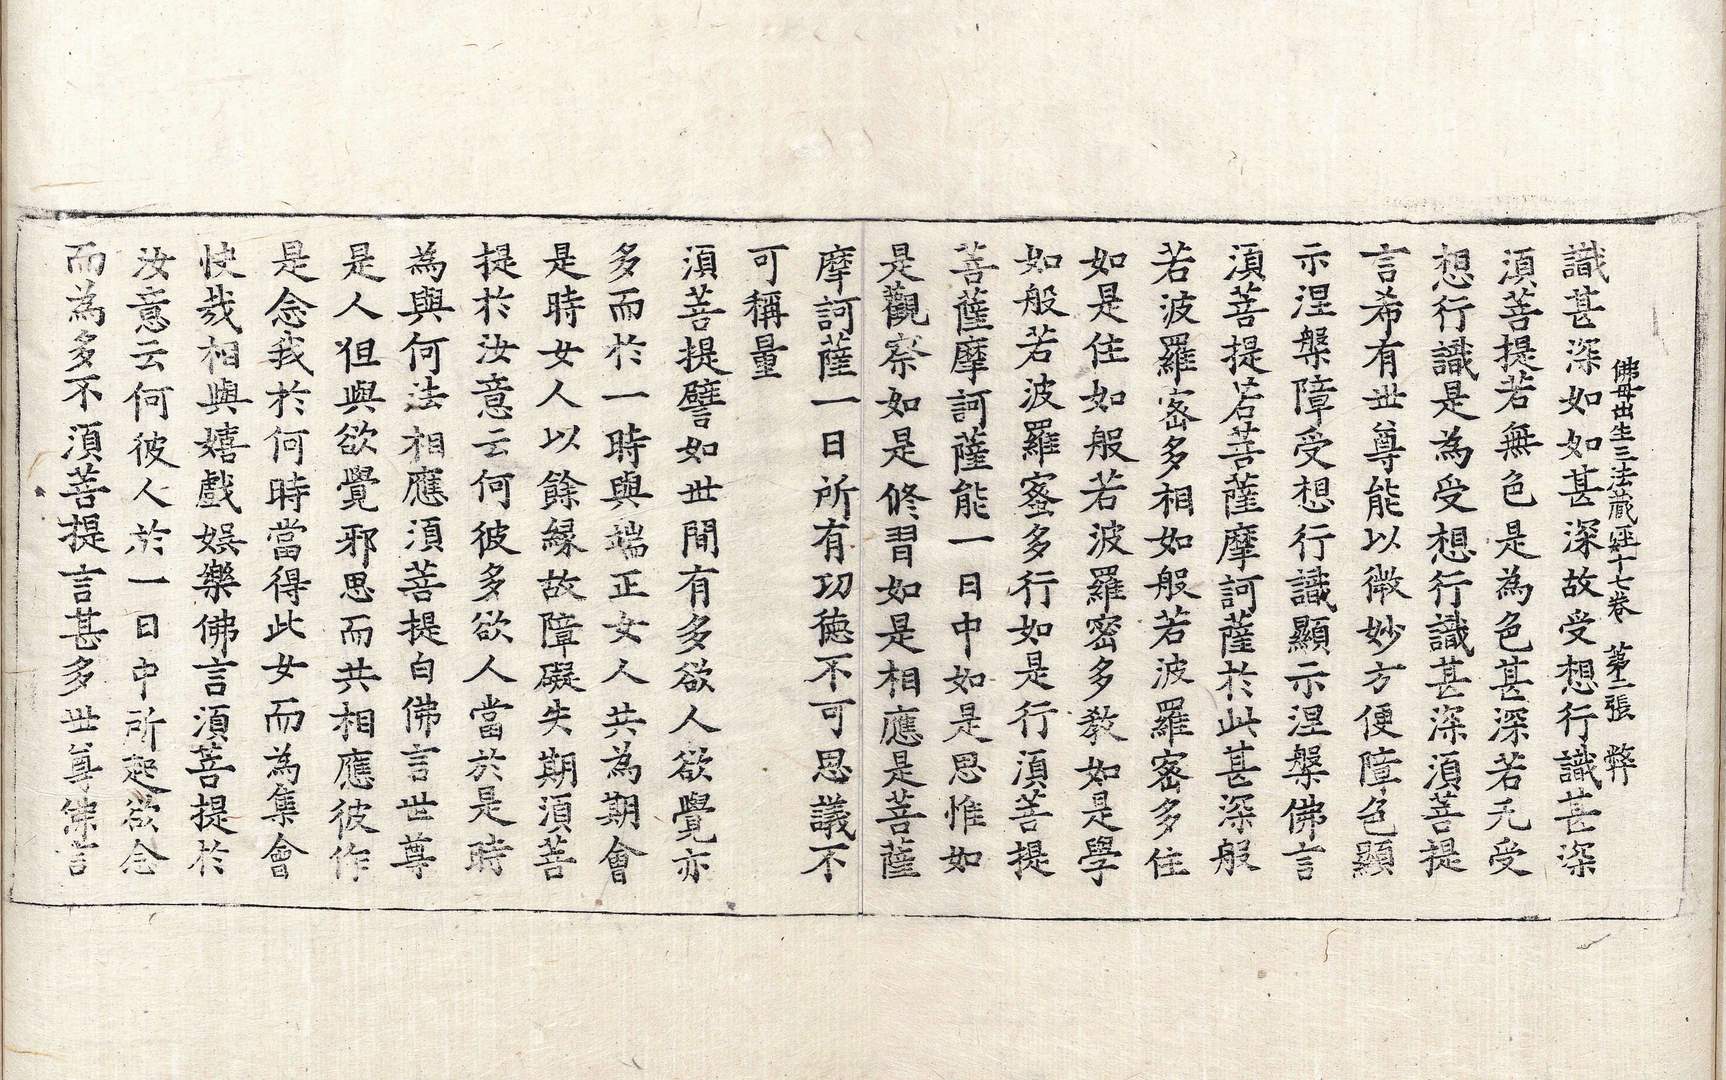 佛母出生三法藏經十七卷　第二張　弊
識甚深如如甚深故受想行識甚深
湏菩提若無色是為色甚深若无受
想行識是為受想行識甚深湏菩提
言希有世尊能以微妙方便障色顯
示涅槃障受想行識顯示涅槃佛言
湏菩提若菩薩摩訶薩於此甚深般
若波羅蜜多相如般若波羅蜜多住
如是住如般若波羅蜜多教如是學
如般若波羅蜜多行如是行湏菩提
菩薩摩訶薩能一日中如是思惟如
是觀察如是修習如是相應是菩薩
摩訶薩一日所有功德不可思議不
可稱量
湏菩提譬如世間有多欲人欲覺亦
多而於一時與端正女人共為期會
是時女人以餘緣故障礙失期湏菩
提於汝意云何彼多欲人當於是時
為與何法相應湏菩提白佛言世尊
是人但與欲覺邪思而共相應彼作
是念我於何時當得此女而為集會
快哉相與嬉戲娛樂佛言湏菩提於
汝意云何彼人於一日中所起欲念
而為多不湏菩提言甚多世尊佛言